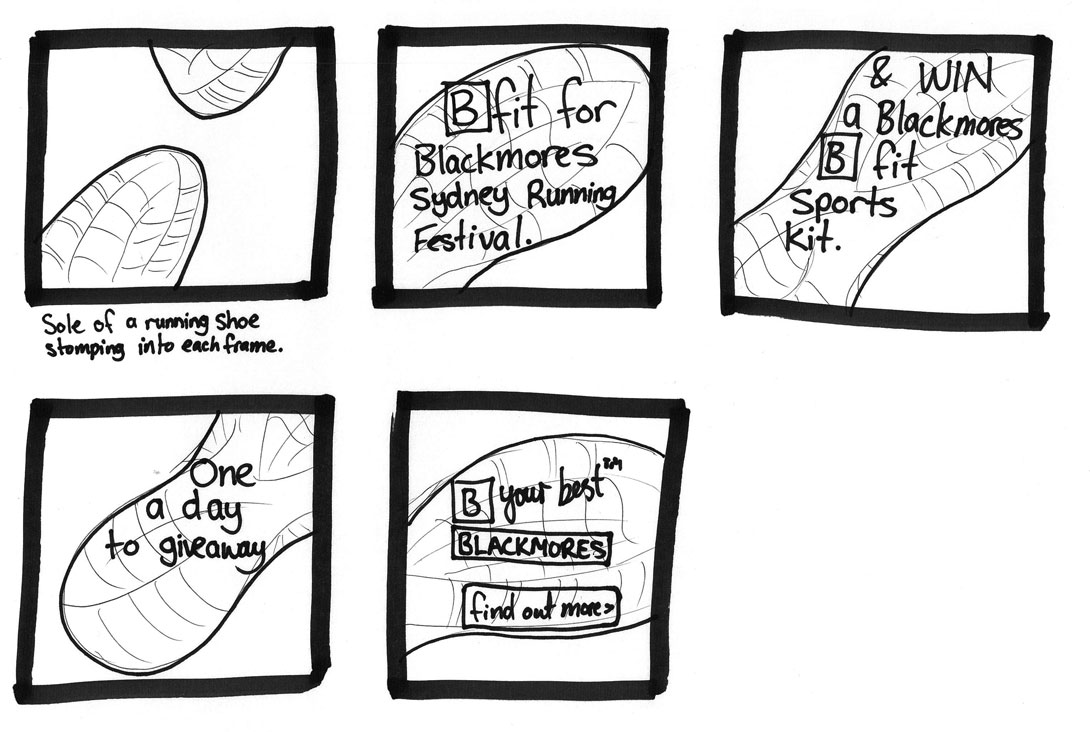 Sole of a running shoe
stomping into each frame.
B fit for
Blackmores
Sydney Running
Festival.
& WIN
a Blackmores
B fit
Sports
Kit.
One
a day
to giveaway
B your best™
BLACKMORES
find out more>